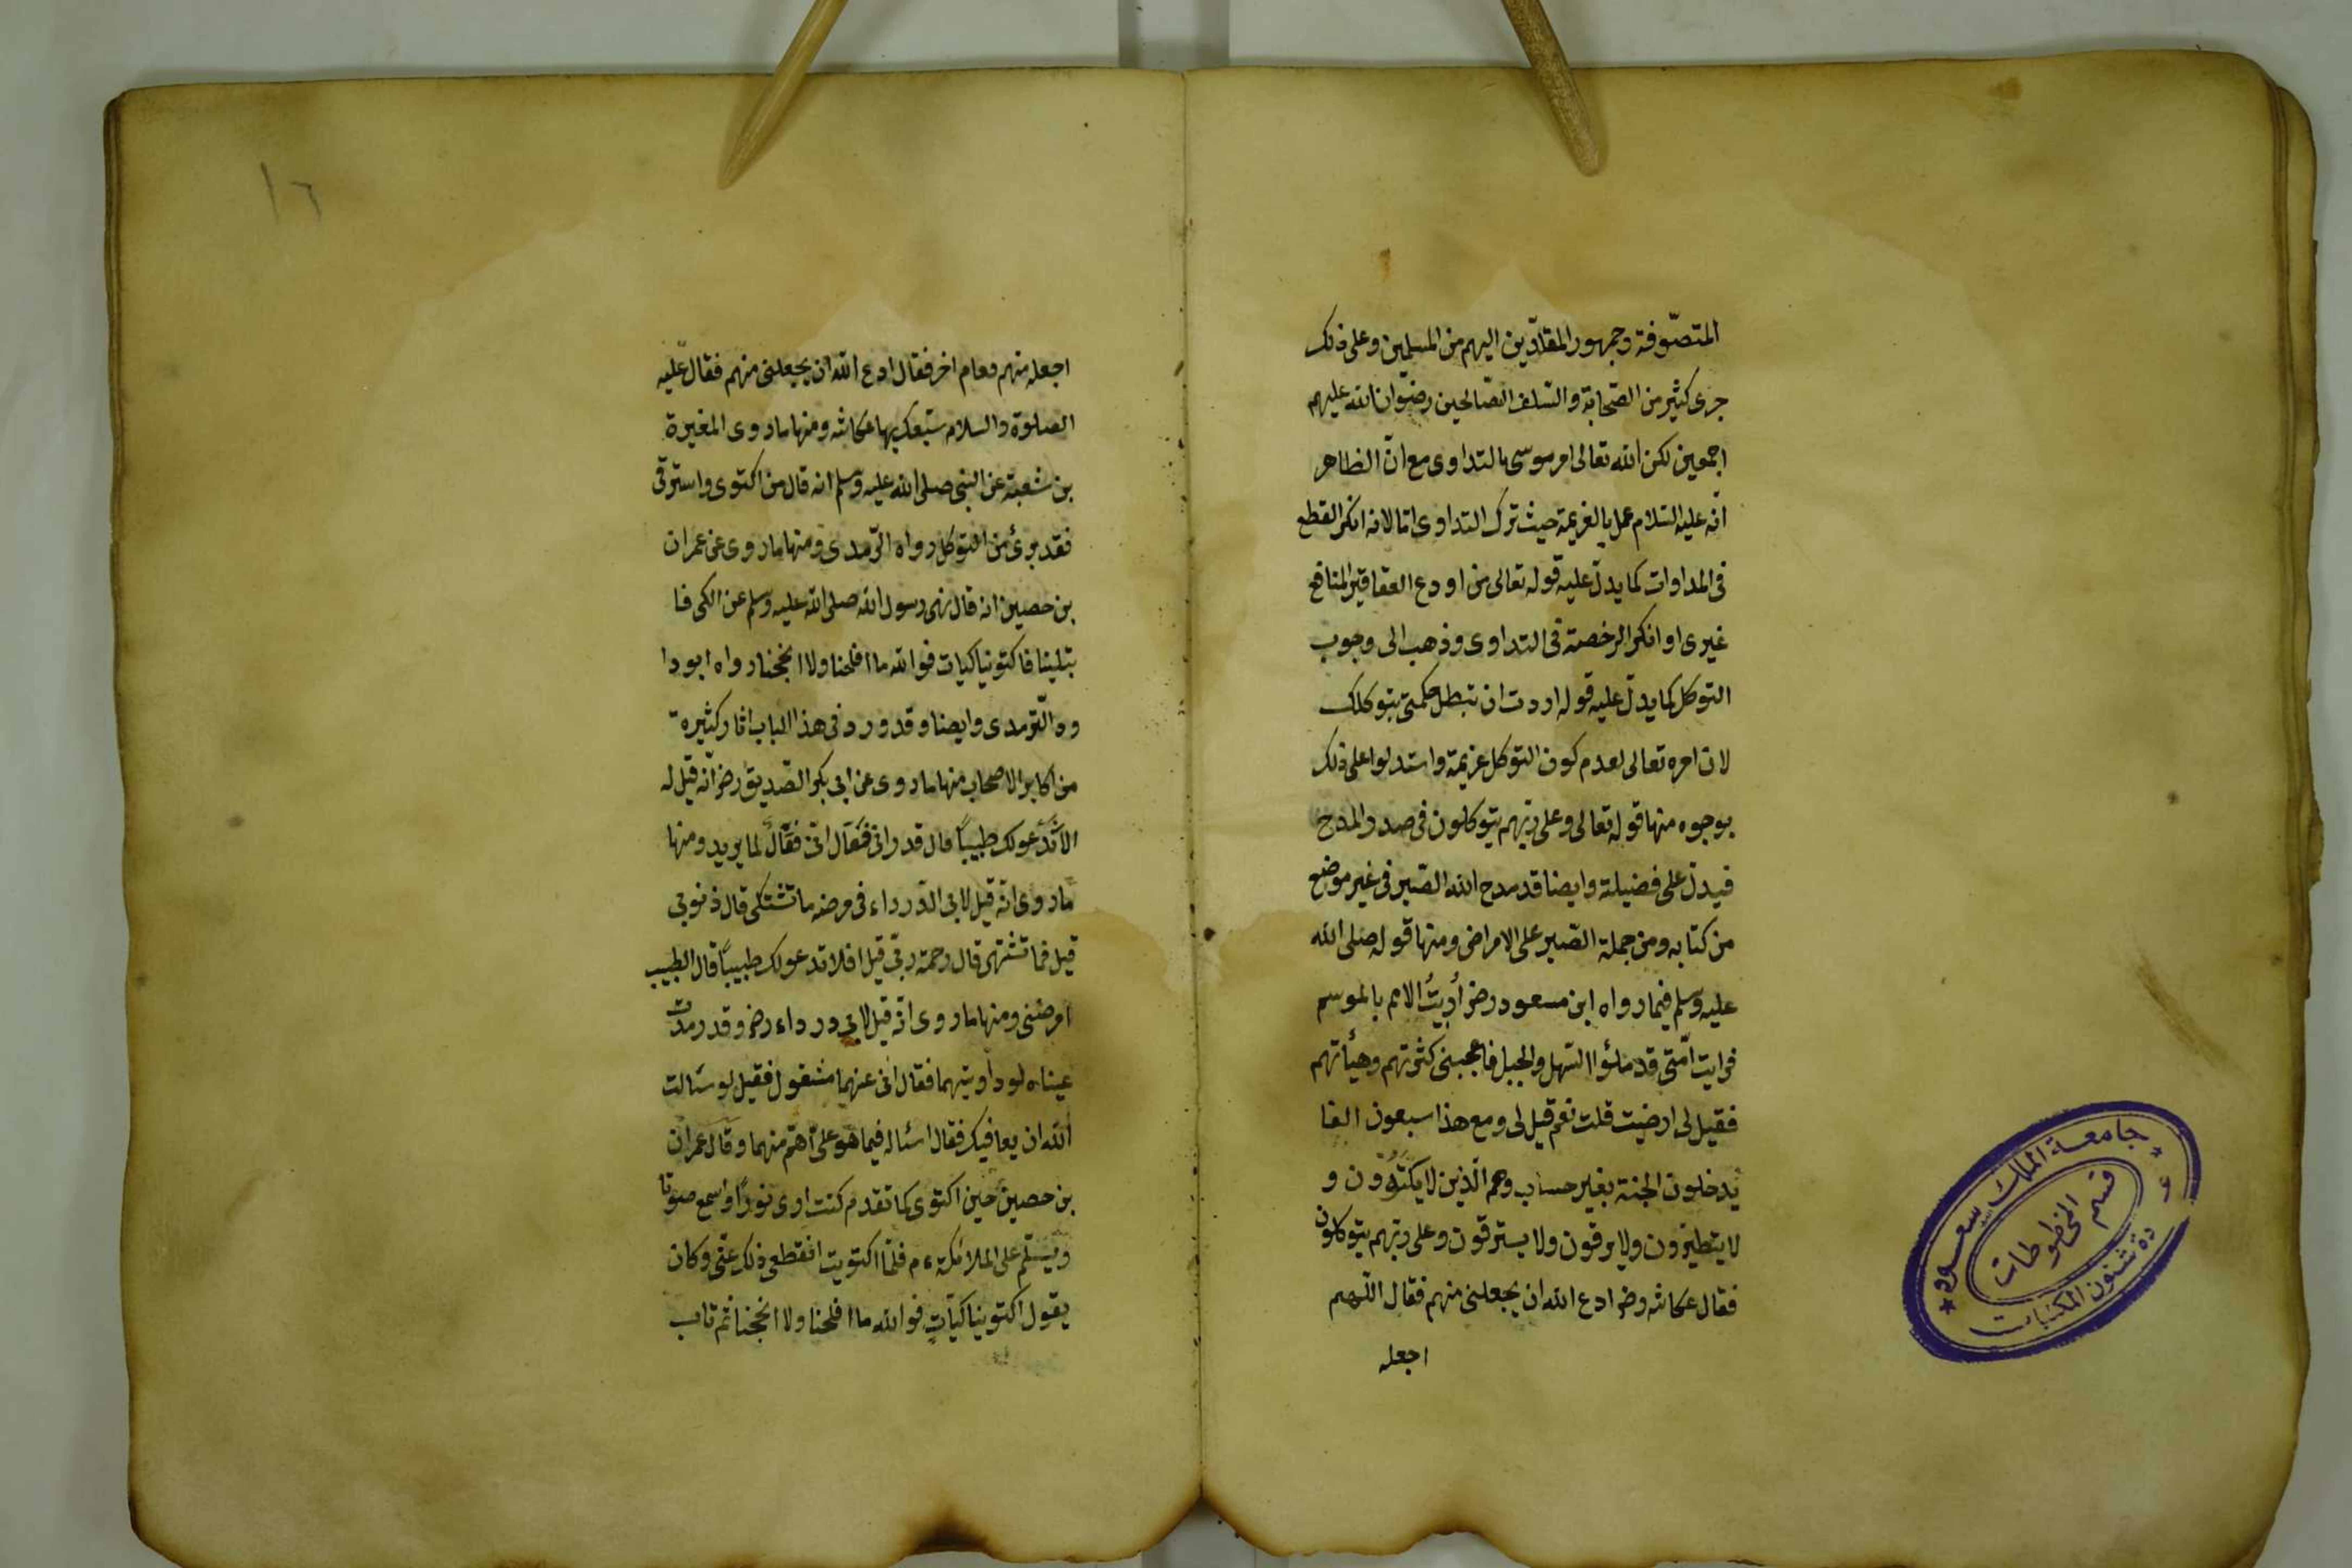 المتصّوفة وجمهور المقلدّين اليهم من المسلمين وعلى ذلك
جرى كثير من الصّحابة والسّلف الصّالحين رضوان الله عليهم
اجمعين لكن الله تعالى امر موسى بالتداوى مع انّ الظاهر
انّه عليه السّلام عمل بالعزيمة حيث ترك التداوى امّا لانه انكر القطع
فى المداوات كما يدلّ عليه قوله تعالى من اودع العقاقير المنافع
غيرى او انكر الرخصة فى التداوى وذهب الى وجوب
التوكل كما يدلّ عليه قوله اردت ان تبطل حكمتى بتوكلك
لان امره تعالى لعدم كون التوكل عزيمة واستدلوا على ذلك
بوجوه منها قوله تعالى وعلى ربّهم يتوكلون فى صدد المدح
فيدلّ على فضيلة وايضا قد مدح الله الصّبر فى غير موضع
من كتابه ومن جملة الصّبر على الامراض ومنها قوله صلى الله
عليه وسلم فيما رواه ابن مسعود رضى أُريتُ الامم بالموسم
فرايت امّتى قد ملؤا السّهل والجبل فاعجبنى كثرتهم وهيأتهم
فقيل لى ارضيت قلت نعم قيل لى ومع هذا سبعون الفا
يدخلون الجنة بغير حساب وهم الّذين لا يكتوون و
لا يتطيرون ولا يرقون ولا يسترقون وعلى ربّهم يتوكلون
فقال عكاشه رضى ادع الله ان يجعلنى منهم فقال اللّهم
اجعله
١٦
اجعله منهم فقام اخر فقال ادع الله ان يجعلنى منهم فقال عليه
الصلوة والسلام سبقك بها عكاشه ومنها ما روى المغيرة
بن شعبة عن النبى صلى الله عليه وسلم انه قال من اكتوى واسترقى
فقد برئ من التوكل رواه الترمدى ومنها ما روى عن عمران
بن حصين انه قال نهى رسول الله صلى الله عليه وسلم عن الكى فا
بتلينا فاكتوينا كيات فوالله ما افلحنا ولا انجحنا رواه ابو دا
ود والتّرمدى وايضا وقد ورد فى هذا الباب اثار كثيرة
من اكابر الاصحاب منها ما روى عن ابى بكر الصّديق رضى انّه قيل له
الا ندعو لك طبيباً قال قد رانى فقال انّى فعّالٌ لما يريد ومنها
ما روى انّه قيل لابى الدّرداء فى مرضه ما تشتكى قال ذنوبى
قيل فما تشتهى قال رحمة ربّى قيل افلا ندعو لك طبيباً قال الطبيب
امرضنى ومنها ما روى انّه قيل لابى درداء رضى وقد رمدت
عيناه لو داويتهما فقال انى عنهما مشغول فقيل لو سئالت
الله ان يعافيك فقال اسئاله فيما هو علىّ اهمّ منهما وقال عمران
بن حصين حين اكتوى كما تقدم كنت ارى نورًا واسمع صوتا
ويسلّم على الملائكة ءم فلمّا اكتويت انقطع ذلك عنّى وكان
يقول اكتوينا كيّاتٍ فوالله ما افلحنا ولا انجحنا ثم تاب
جامعة الملك سعود
قسم المخطوطات
شئون المكتبات